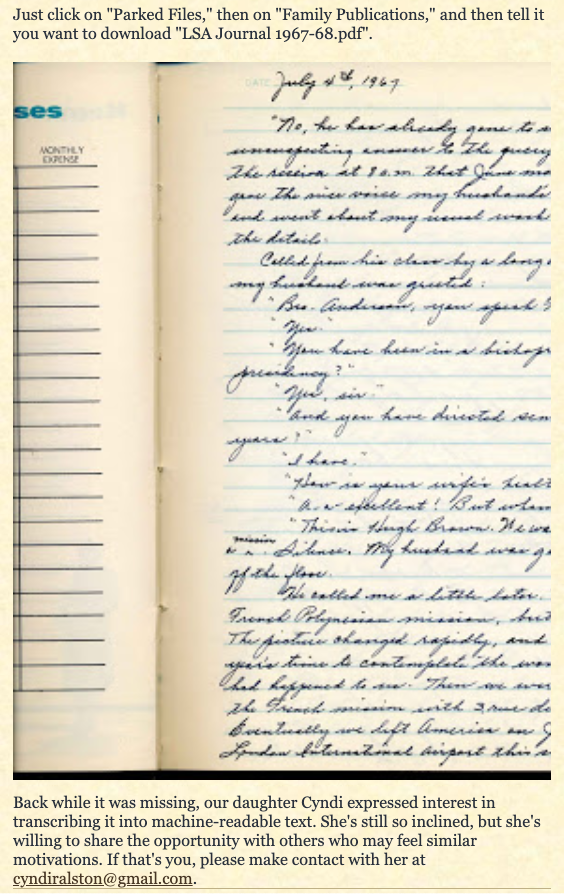 Just click on "Parked Files," then on "Family Publications," and then tell it
you want to download "LSA Journal 1967-68.pdf".
ses
MONTHLY
EXPENSE
DATE July 4th, 1967
"No, he has already gone to
unsuspecting answer to the query
the receiver at 8 a.m. that June
gave the nice voice my husband's
and went about my usual wash
the details.
Called from his class by a long
my husband was greeted:
"Bro. Anderson, you speak
"Yes."
"You have been in a bishop
presidency?"
"Yes, sir."
"And you have directed
years?"
"I have."
"How is your wife's
"A-a excellent! But
"This is Hugh Brown. We
mission
Silence. My husband was
of the floor.
He called me a little later.
French Polynesian mission,
The picture changed rapidly, and
year's time to contemplate the
had happened to us. Then we
the French mission with 3, rue
Eventually we left America on
London International airport this
Back while it was missing, our daughter Cyndi expressed interest in
transcribing it into machine-readable text. She's still so inclined, but she's
willing to share the opportunity with others who may feel similar
motivations. If that's you, please make contact with her at
cyndiralston@gmail.com.